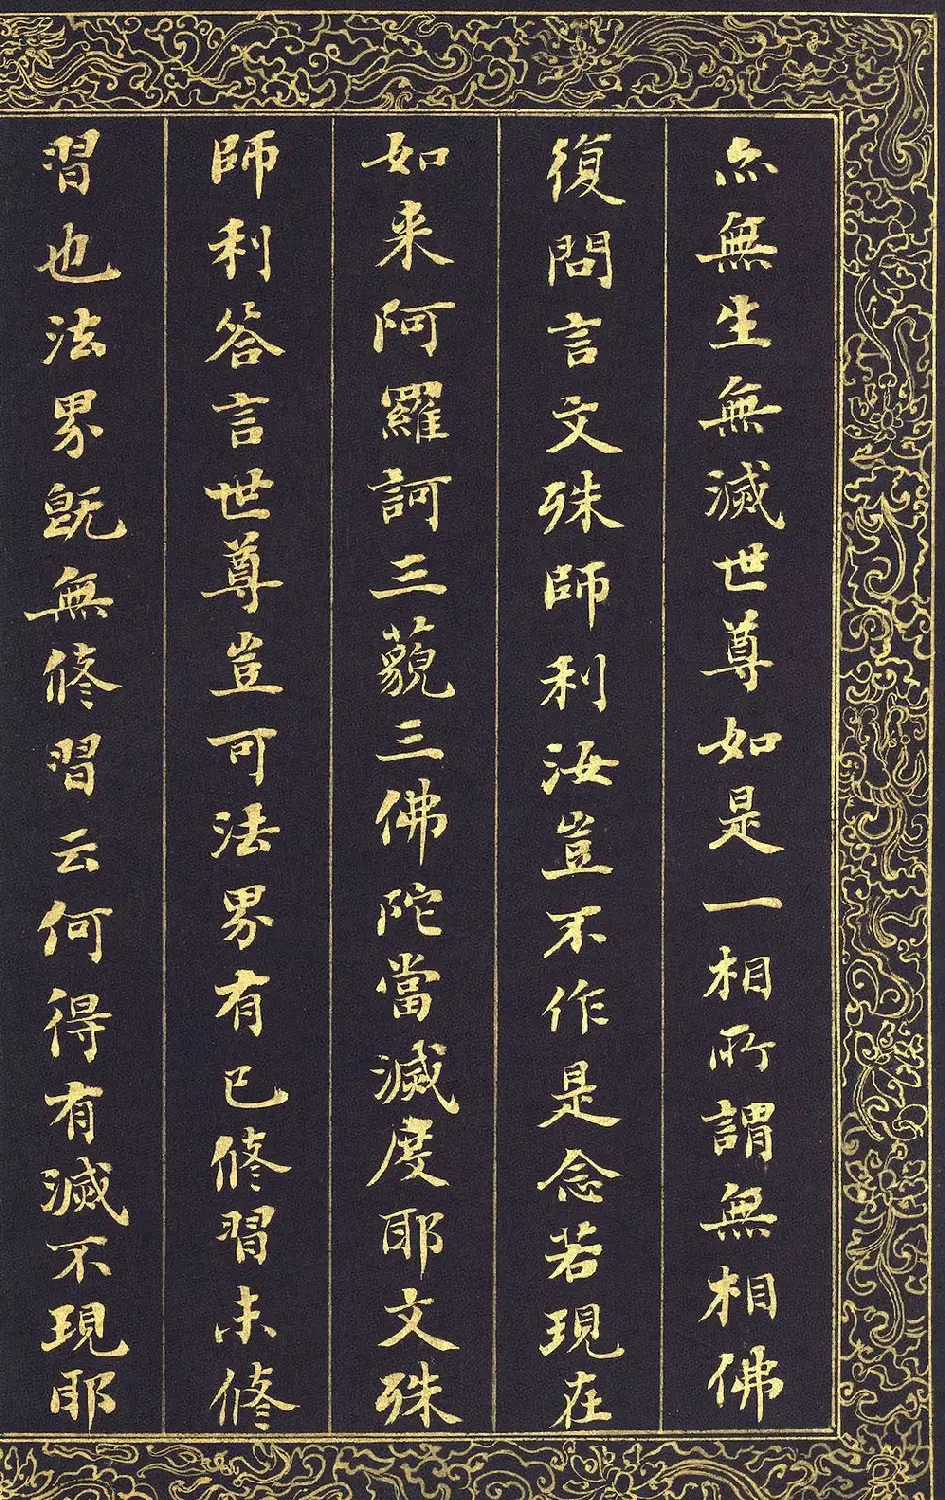 亦無生無滅世尊如是一相所謂無相佛
復問言文殊師利汝豈不作是念若現在
如来阿羅訶三藐三佛陀當滅度耶文殊
師利答言世尊豈可法界有已修習未修
習也法界既無修習云何得有滅不現耶